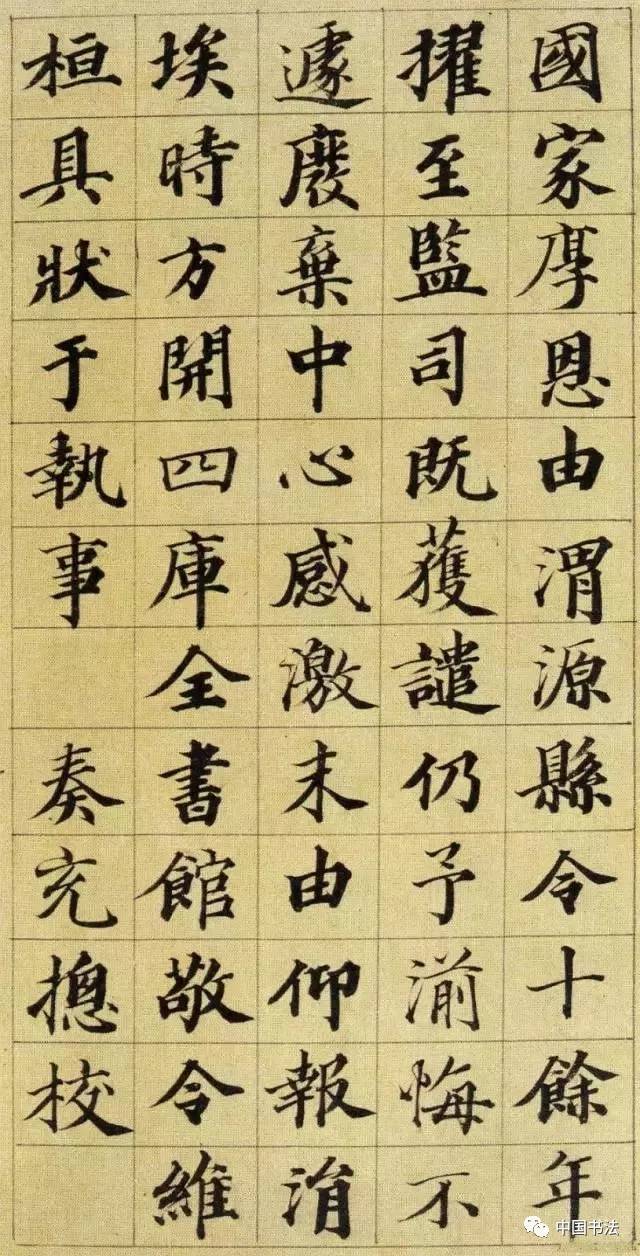 國家厚恩由渭源縣令十餘年
擢至監司既獲譴仍予湔悔不
遽廢棄中心感激末由仰報涓
埃時方開四庫全書館敬令維
桓具狀于執事 奏充摠校
中国书法